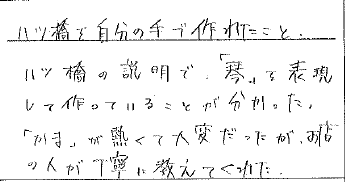 八ツ橋を自分の手で作れたこと.
八ツ橋の説明で.「琴」を表現
して作っていることが分かった.
「かま」が熱くて大変だったが、お店
の人が丁寧に教えてくれた.